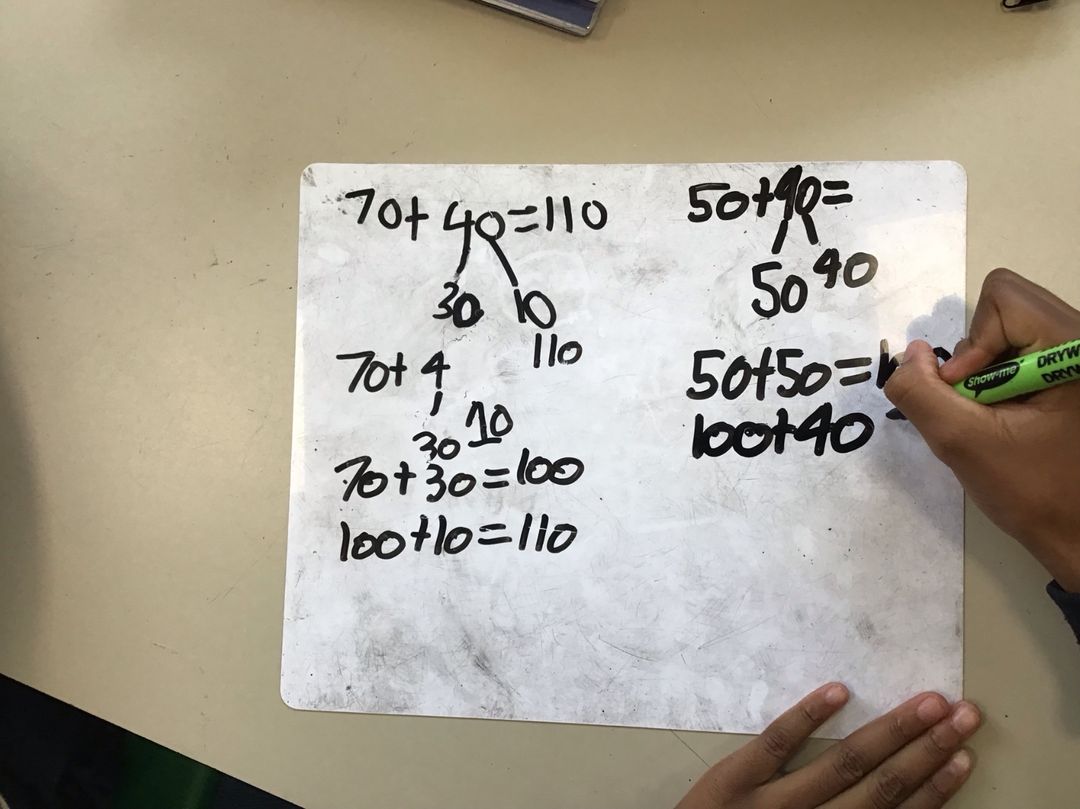 70+ 40=110
30 10
110
70+ 4
30 10
70+30=100
100+10=110
50+90=
50 40
50+50=
100+40
show-me
DRYW
DRYW